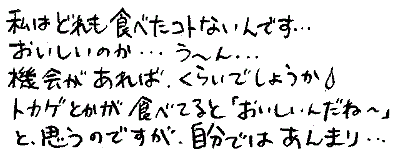 私はどれも食べたコトないんです…
おいしいのか… う〜ん…
機会があれば、くらいでしょうか♪
トカゲとかが食べてると「おいしいんだね〜」
と、思うのですが、自分ではあんまり…